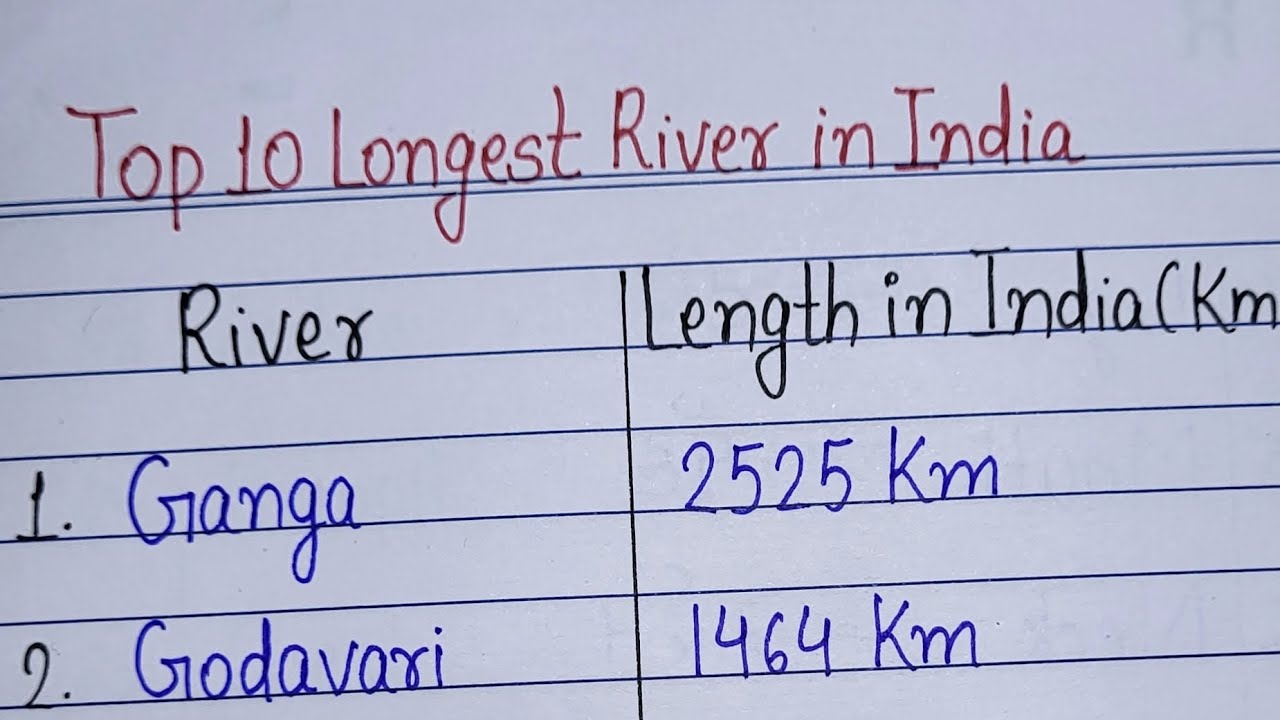 Top 10 Longest River in India
River Length in India (Km
1. Ganga 2525 Km
2. Godavari 1464 Km